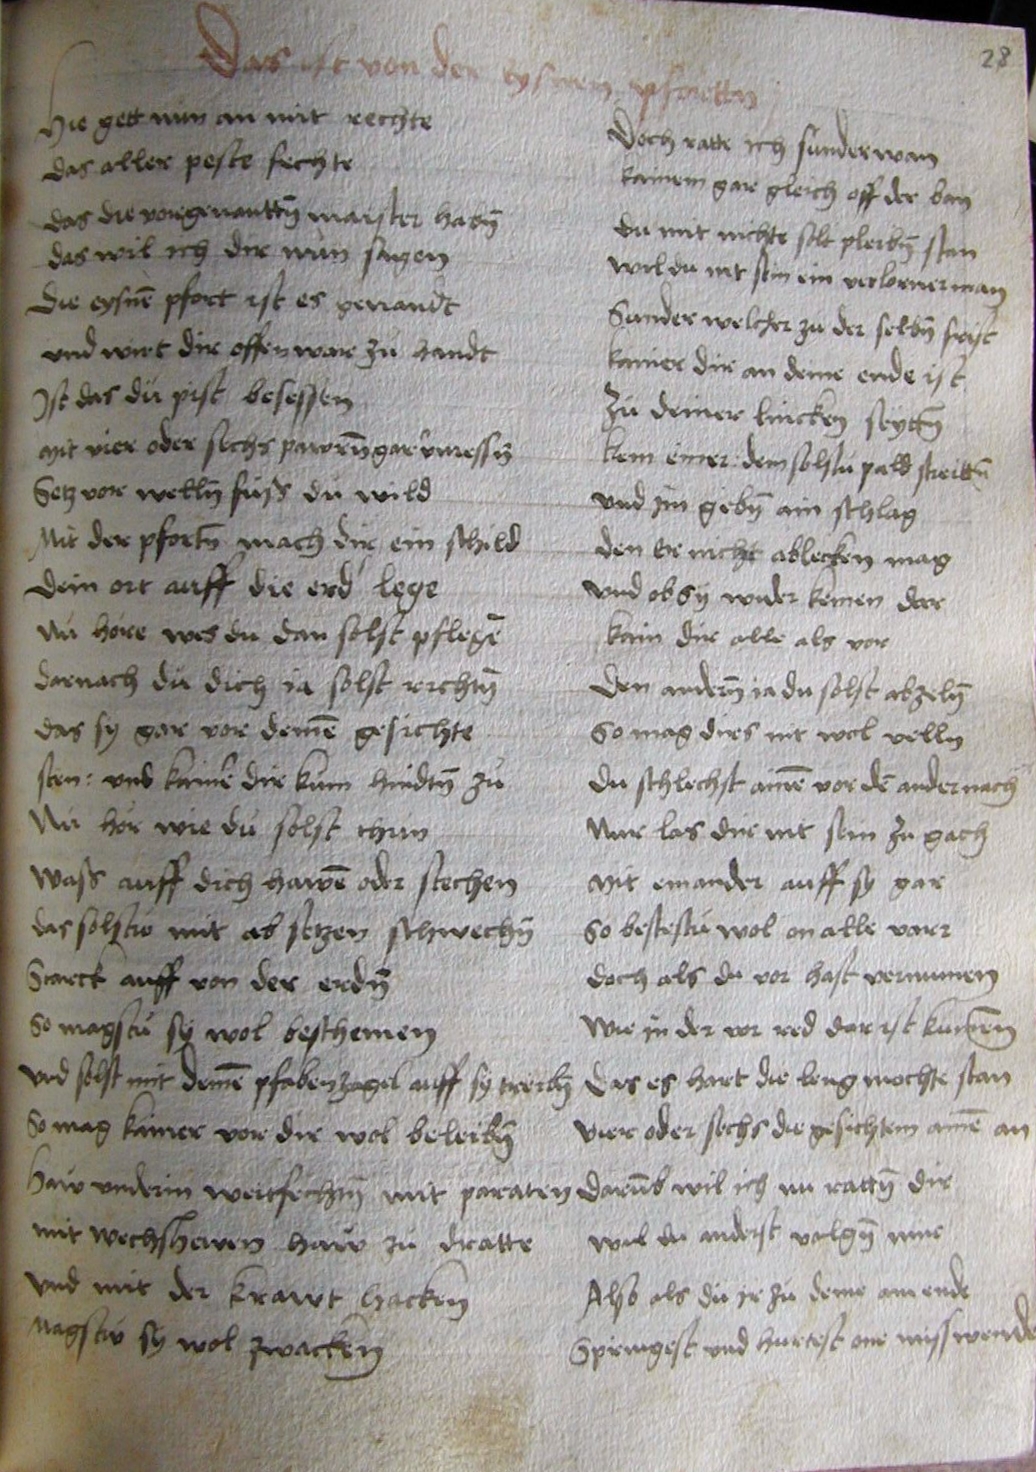 28
Das ist von der eysnen pforttn
Hie gett nun an mit rechte
das aller peste fechte
das die vorgenanttn̄ maister habn̄
das wil ich dir nun sagen
Die eysnē pfort ist es genandt
vnd wirt dir offenwar zu handt
Ist das du pist besessen
mit vier oder sechs pawrn̄ gar vmessn̄
Setz vor welln̄ fuß du wild
Mit der pfortn̄ mach dir ein schild
Dein ort auff die erd lege
Nu hore wes du dan solst pflegē
darnach du dich ia solst richtn̄
das sy gar vor demē gesichte
sten: vnd kainē dir kum hindtn̄ zu
Nu hor wie du solst thun
Waß auff dich hawē oder stechen
das solstu mit ab setzen schwechn̄
Starck auff von der erdn̄
So magstu sy wol beschemen
vnd solst mit demē pfobenzagel auff sy treibn̄
So mag kainer vor dir wol beleibn̄
Haw vnderin weitfechtn̄ mit paraten
mit wechslhewen haw zu dratte
vnd mit der krawt hacken
Magstu sy wol zwacken
Doch ratte ich sunder wan
kainem gar gleich off der ban
du mit nichte solt pleibn̄ stan
wil du nit sein ein verlorner man
Sunder welcher zu der selbn̄ frist
kainer dir an deine ende ist
Zu deiner lincken seyttn̄
kem einer: dem solstu pald streittn̄
vnd im gebn̄ ain schlag
den er nicht ablecken mag
vnd ob sy wider kemen dar
kain dir alle als vor
Den andern̄ ia du solst abzeln̄
So mag dirs nit wol velln
Du schlechst ainē vor dē andern nach
Nur las dir nit sein zu gach
Mit einander auff sy gar
So bestestu wol on alle varr
doch als du vor hast vernumen
wie in der vor red dar ist kumēn
Das es hart die leng mochte stan
vier oder sechs die gesichtem ainē an
Darūb wil ich nu rattn̄ dir
wil du anderst volgn̄ mir
Also als du ir zu deme am ende
Springest vnd hurtest one misswende